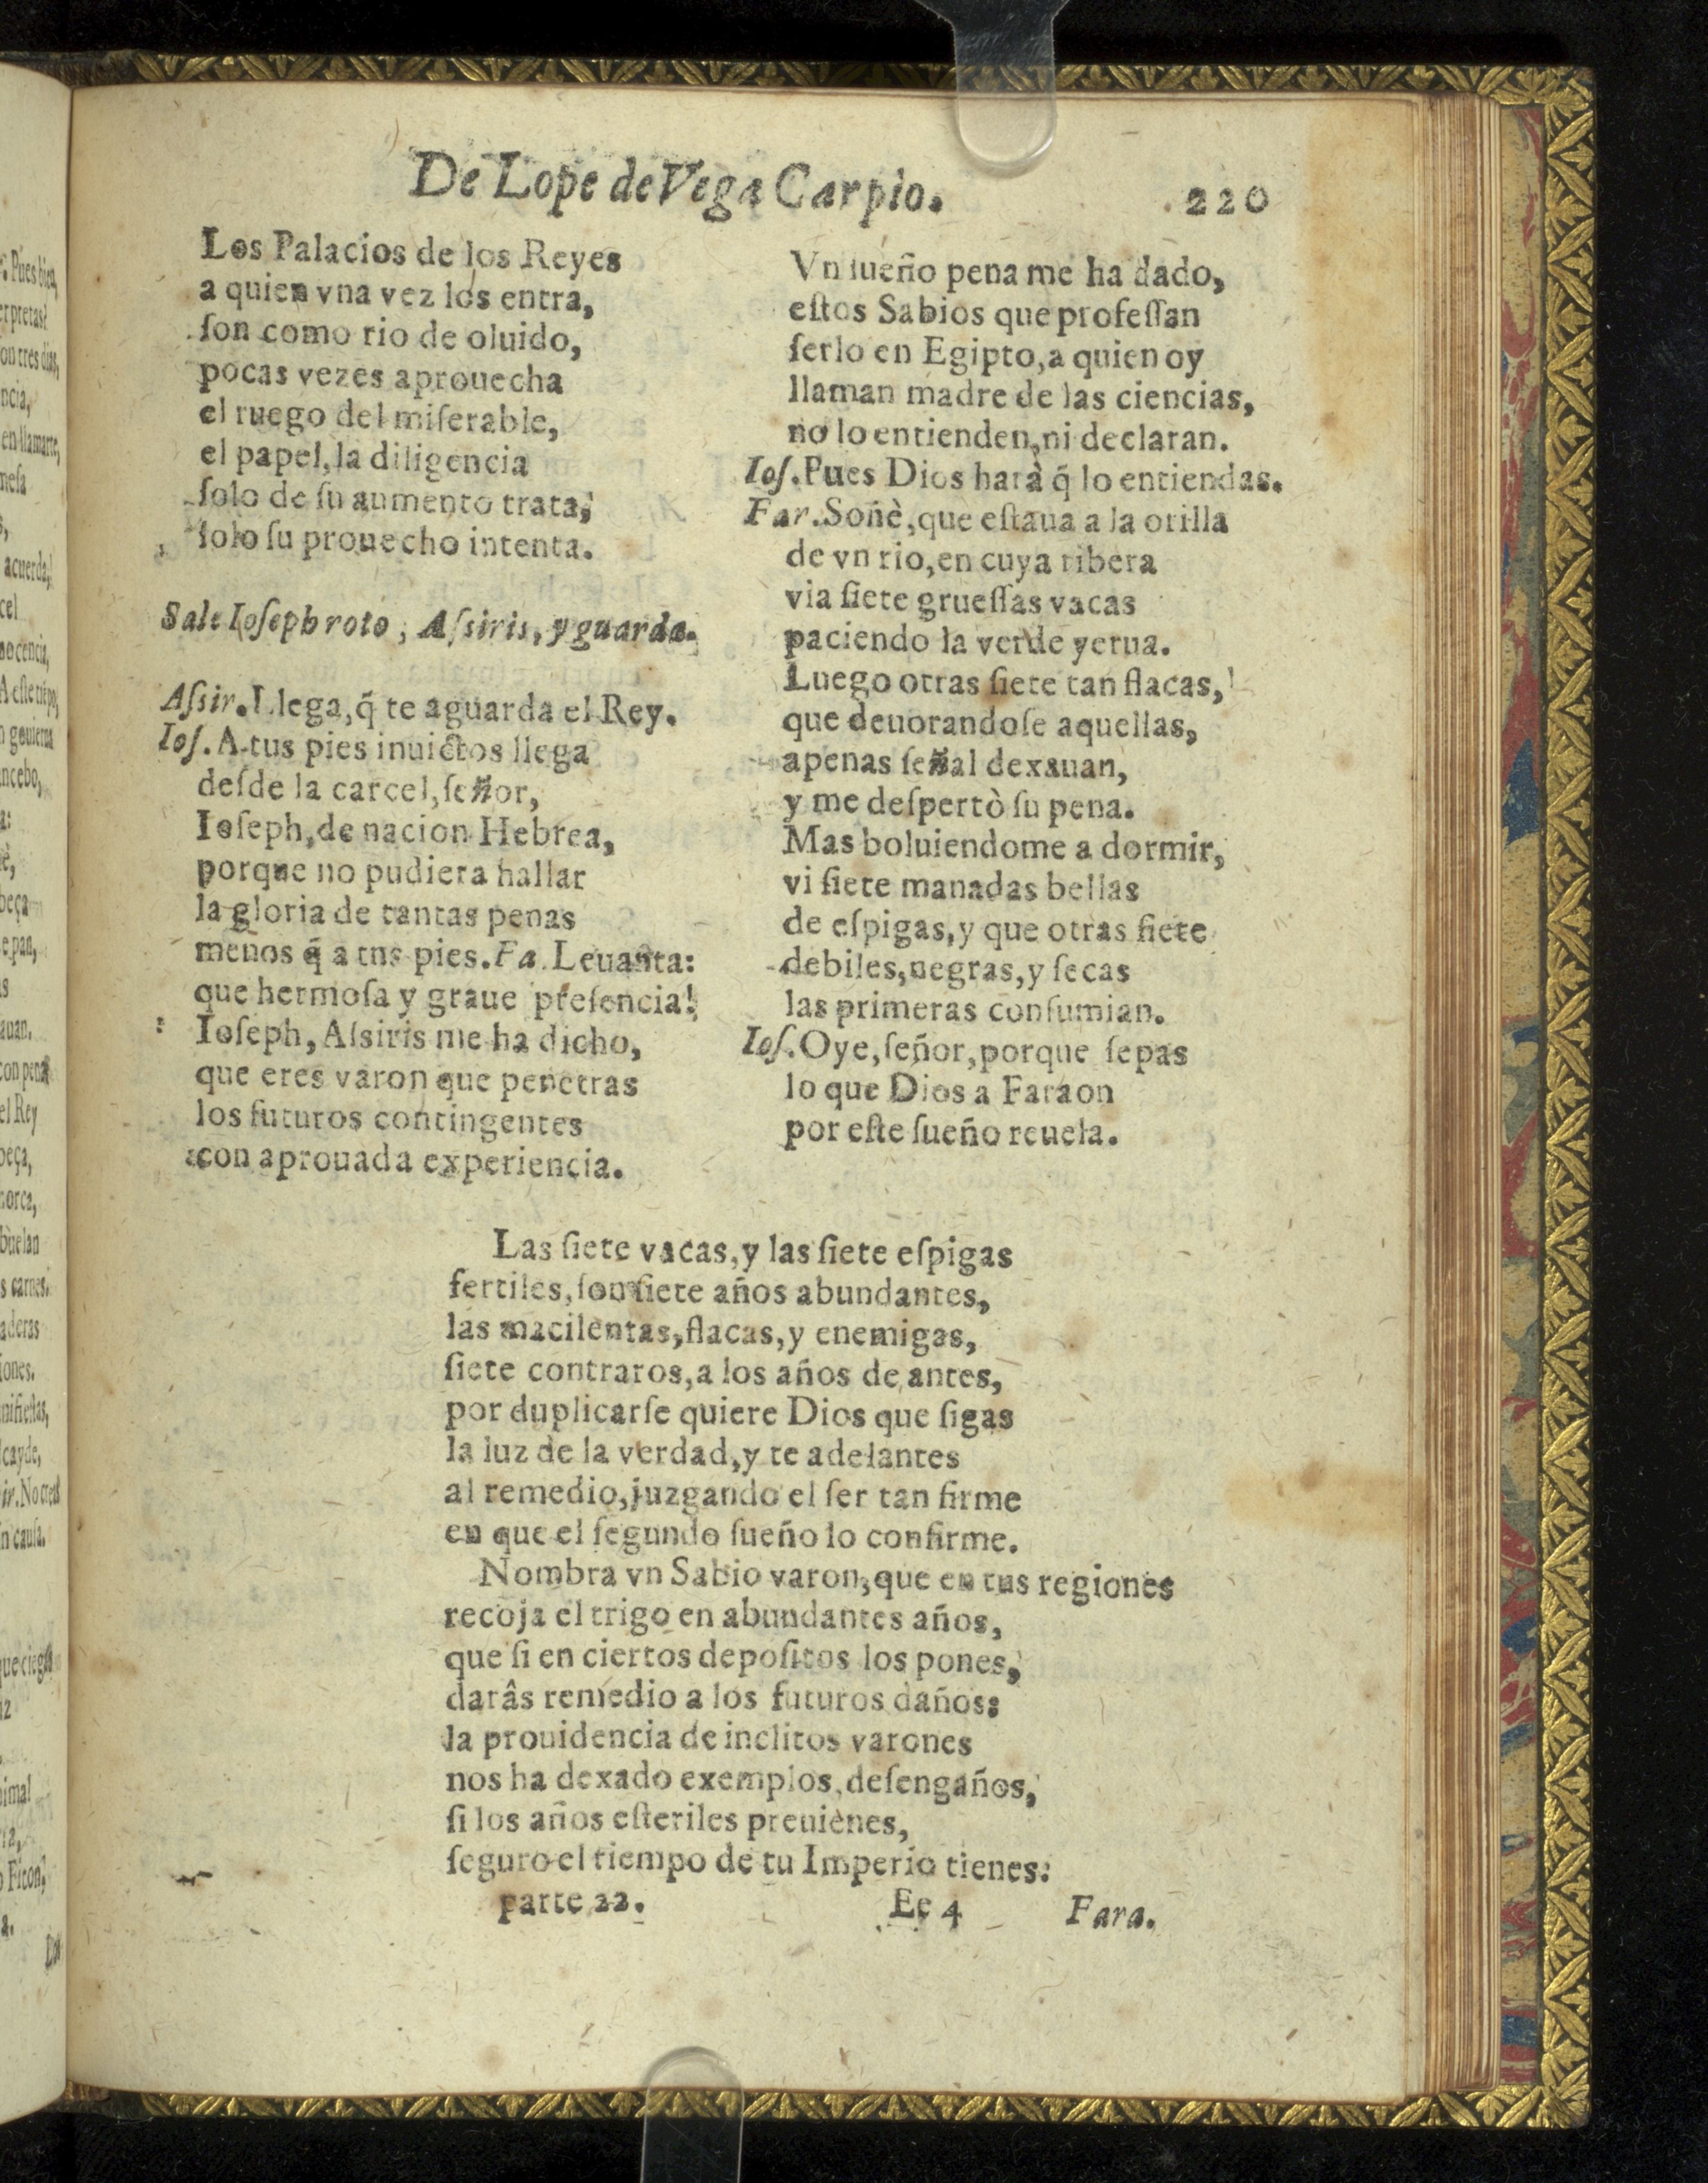 De Lope de Vega Carpio.
220
Los Palacios de los Reyes
a quien vna vez los entra,
ſon como rio de oluido,
pocas vezes aprouecha
el ruego del miſerable,
el papel, la diligencia
ſolo de ſu aumento trata,
ſolo ſu prouecho intenta.
Sale Ioſeph roto, Aſsiris, y guarda.
Aſsir. Llega, q̃ te aguarda el Rey.
Ioſ. A tus pies inuictos llega
deſde la carcel, ſeñor,
Ioſeph, de nacion Hebrea,
porque no pudiera hallar
la gloria de tantas penas
menos q̃ a tns pies. Fa. Leuanta:
que hermoſa y graue preſencia!
Ioſeph, Aſsiris me ha dicho,
que eres varon que penetras
los futuros contingentes
con aprouada experiencia.
Vn ſueño pena me ha dado,
eſtos Sabios que profeſſan
ſerlo en Egipto, a quien oy
llaman madre de las ciencias,
no lo entienden, ni declaran.
Ioſ. Pues Dios harà q̃ lo entiendas.
Far. Soñè, que eſtaua a la orilla
de vn rio, en cuya ribera
via ſiete grueſſas vacas
paciendo la verde yerua.
Luego otras ſiete tan flacas,
que deuorandoſe aquellas,
apenas ſeñal dexauan,
y me deſpertò ſu pena.
Mas boluiendome a dormir,
vi ſiete manadas bellas
de eſpigas, y que otras ſiete
debiles, negras, y ſecas
las primeras conſumian.
Ioſ. Oye, ſeñor, porque ſepas
lo que Dios a Faraon
por eſte ſueño reuela.
Las ſiete vacas, y las ſiete eſpigas
fertiles, ſon ſiete años abundantes,
las macilentas, flacas, y enemigas,
ſiete contraros, a los años de antes,
por duplicarſe quiere Dios que ſigas
la luz de la verdad, y te adelantes
al remedio, juzgando el ſer tan firme
en que el ſegundo ſueño lo confirme.
Nombra vn Sabio varon, que en tus regiones
recoja el trigo en abundantes años,
que ſi en ciertos depoſitos los pones,
darâs remedio a los futuros daños:
la prouidencia de inclitos varones
nos ha dexado exemplos, deſengaños,
ſi los años eſteriles preuiènes,
ſeguro el tiempo de tu Imperio tienes:
parte 22. Ee 4 Fara.